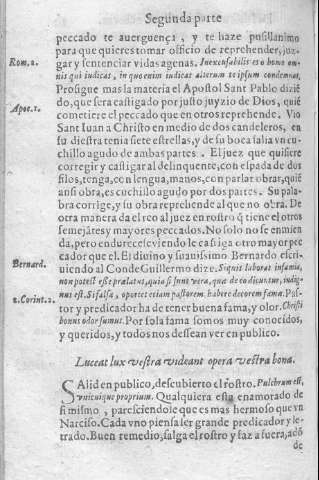 Segunda parte
peccado te auerguença, y te haze pusillanimo
para que quieres tomar officio de reprehender, juz-
Rom.2.
gar y sentenciar vidas agenas. Inexcusabilis es o homo om-
nis qui iudicas, in quo enim iudicas alterum te ipsum condemnas,
Prosigue mas la materia el Apostol Sant Pablo dizié
do, que sera castigado por justo juyzio de Dios, quié
Apoc.1.
cometiere el peccado que en otros reprehende. Vio
Sant Iuan a Christo en medio de dos candeleros, en
su diestra tenia siete estrellas, y de su boca salia vn cu-
chillo agudo de ambas partes. El juez que quisiere
corregir y castigar al delinquente, con espada de dos
filos, tenga, con lengua, manos, con parlar obrar, quié
ansi obra, es cuchillo agudo por dos partes. Su pala-
bra corrige, y su obra reprehende al que no obra. De
otra manera da el reo al juez en rostro q̃ tiene el otros
semejātes y mayores peccados. No solo no se enmien
da, pero endurecese viendo le castiga otro mayor pec
Bernard.
cador que el. El diuino y suauissimo Bernardo escri-
uiendo al Conde Guillermo dize. Si quis laborat infamia,
non potest esse prælatus, quio si sunt vera, quæ de eo dicuntur, indig-
2.Corint.2.
nus est. Si falsa, oportet etiam pastorem habere decorem famæ. Pas-
tor y predicador ha de tener buena fama, y olor. Christi
bonus odor sumus. Por sola fama somos muy conocidos,
y queridos, y todos nos dessean ver en publico.
Luceat lux vestra videant opera vestra bona.
SAlid en publico, descubierto el rostro. Pulchrum est,
vnicuique proprium. Qualquiera esta enamorado de
si mismo, paresciendole que es mas hermoso que vn
Narciso. Cada vno piensa ser grande predicador y le-
trado. Buen remedio, salga el rostro y faz a fuera, adō
de